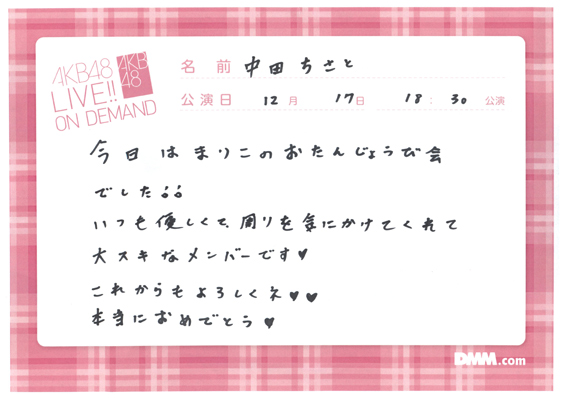 AKB48
LIVE!!
ON DEMAND
AKB
48
名前 中田ちさと
公演日 12月 17日 18:30 公演
今日はまりこのおたんじょうび会
でした!!
いつも優しくて、周りを気にかけてくれて
大スキなメンバーです♥
これからもよろしくネ♥♥
本当におめでとう♥
DMM.com